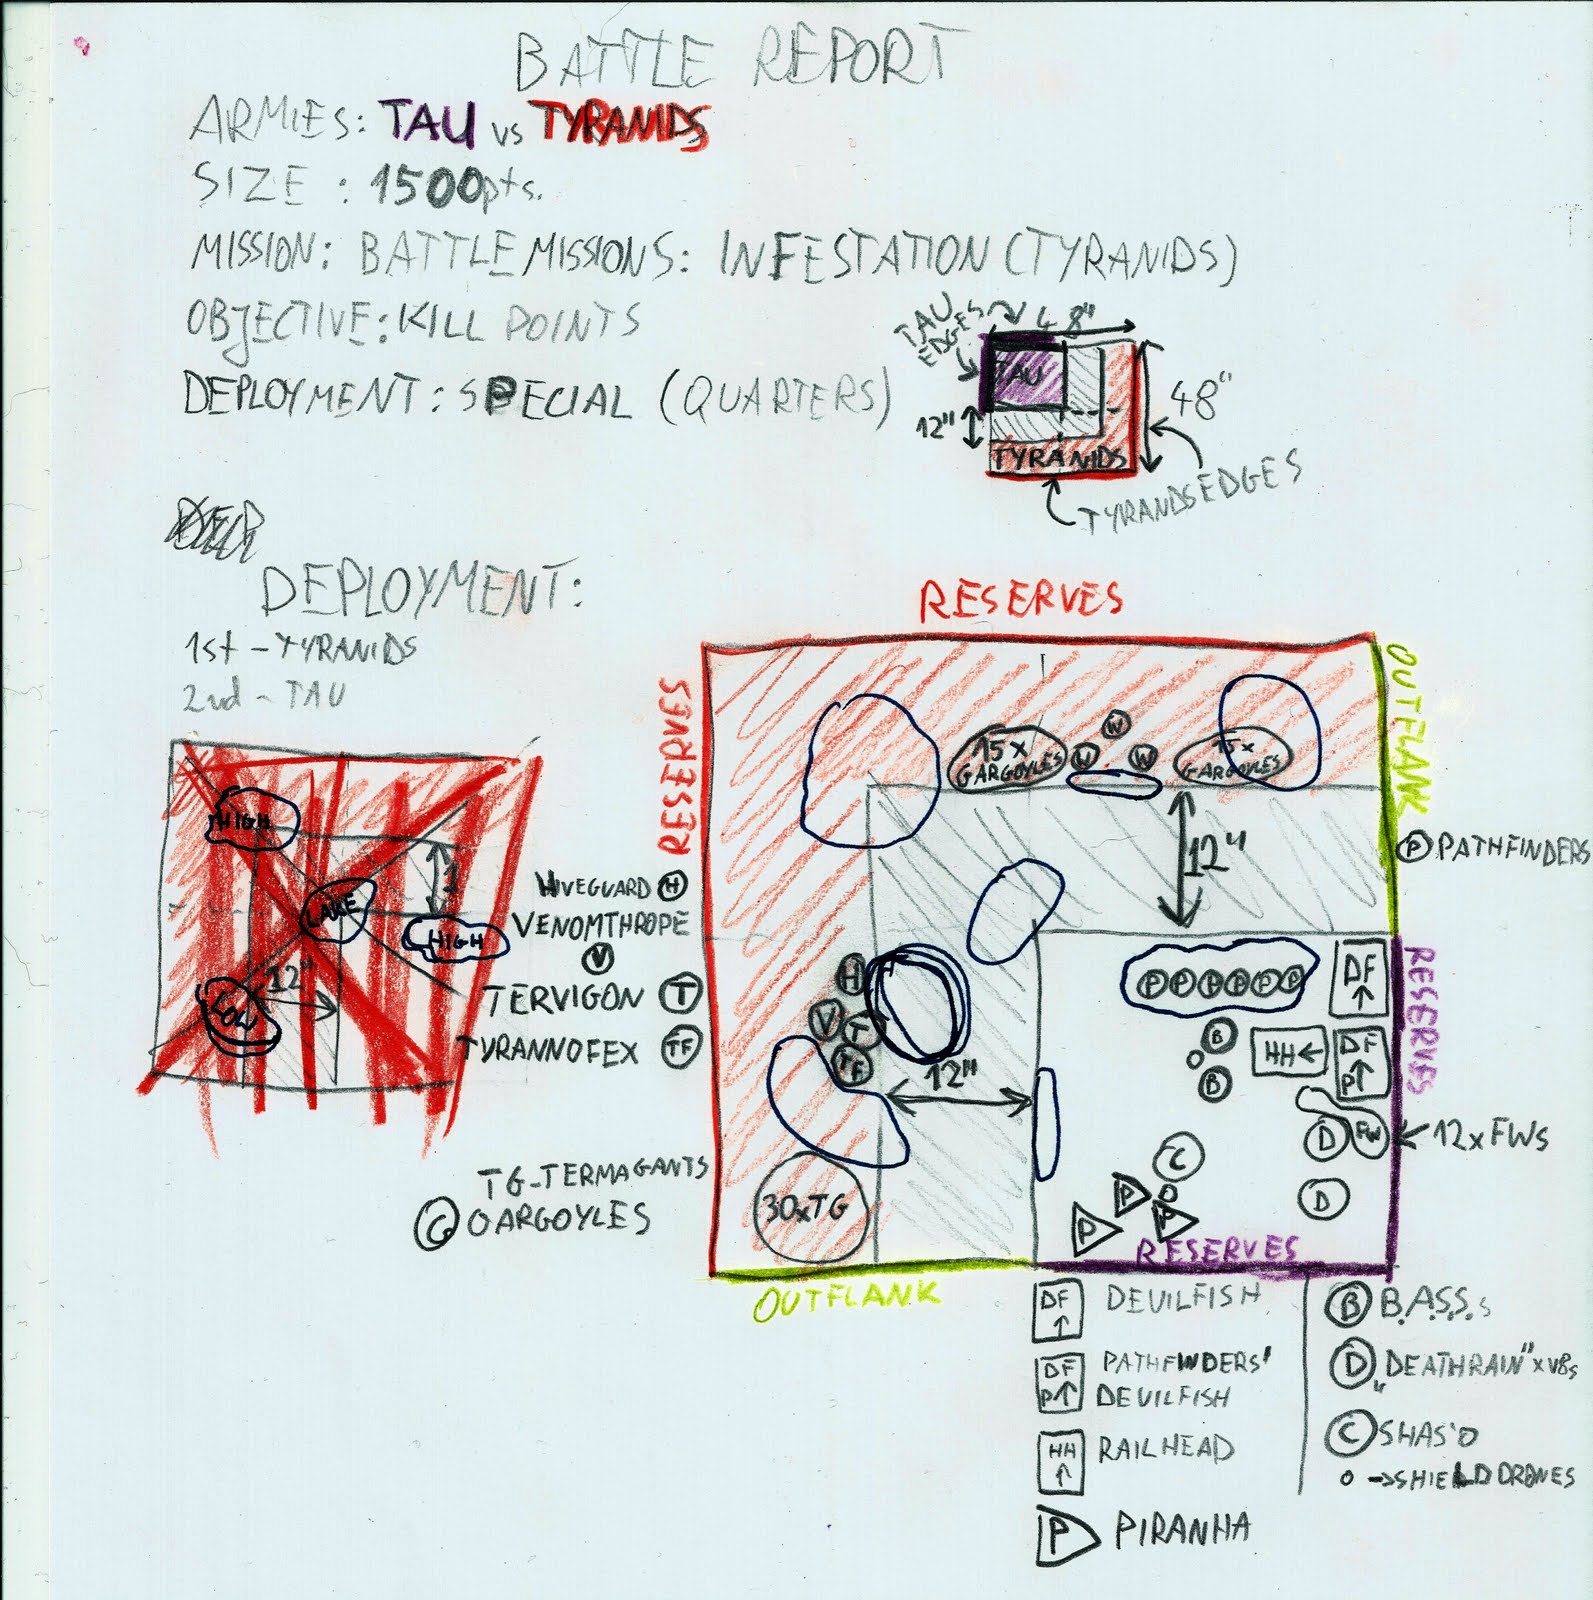 BATTLE REPORT
ARMIES: TAU vs TYRANIDS
SIZE : 1500pts.
MISSION: BATTLE MISSIONS: INFESTATION (TYRANIDS)
OBJECTIVE: KILL POINTS
DEPLOYMENT: SPECIAL (QUARTERS)
TAU
EDGES
48"
TAU
48"
12"
TYRANIDS
TYRANDS EDGES
DEPLOYMENT:
1st - TYRANIDS
2nd - TAU
HIGH
LAKE
HIGH
12"
LOW
RESERVES
RESERVES
OUTFLANK
15x
GARGOYLES
W
W
W
15x
GARGOYLES
12"
P PATHFINDERS
HIVEGUARD H
VENOMTHROPE
V
TERVIGON T
TYRANNOFEX TF
H
V
T
TF
12"
P P P P P P
DF
RESERVES
B
B
HH
DF
P
D
FW
12xFWs
C
D
P
P
P
RESERVES
TG-TERMAGANTS
G GARGOYLES
30xTG
OUTFLANK
DF DEVILFISH
DF P PATHFINDERS'
DEVILFISH
HH RAILHEAD
P PIRANHA
B B.A.S.S.s
D „DEATHRAIN" XV8s
C SHAS'O
o → SHIELD DRONES